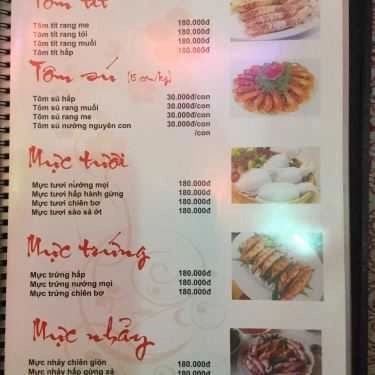 Tôm tít
Tôm tít rang me 180.000đ
Tôm tít rang tỏi 180.000đ
Tôm tít rang muối 180.000đ
Tôm tít hấp 180.000đ
Tôm sú (15 con/kg)
Tôm sú hấp 30.000đ/con
Tôm sú rang muối 30.000đ/con
Tôm sú rang me 30.000đ/con
Tôm sú nướng nguyên con 30.000đ/con
/con
Mực tươi
Mực tươi nướng mọi 180.000đ
Mực tươi hấp hành gừng 180.000đ
Mực tươi chiên bơ 180.000đ
Mực tươi sào sả ớt 180.000đ
Mực trứng
Mực trứng hấp 180.000đ
Mực trứng nướng mọi 180.000đ
Mực trứng chiên bơ 180.000đ
Mực nháy
Mực nháy chiên giòn 180.000đ
Mực nháy hấp gừng sả 180.000đ